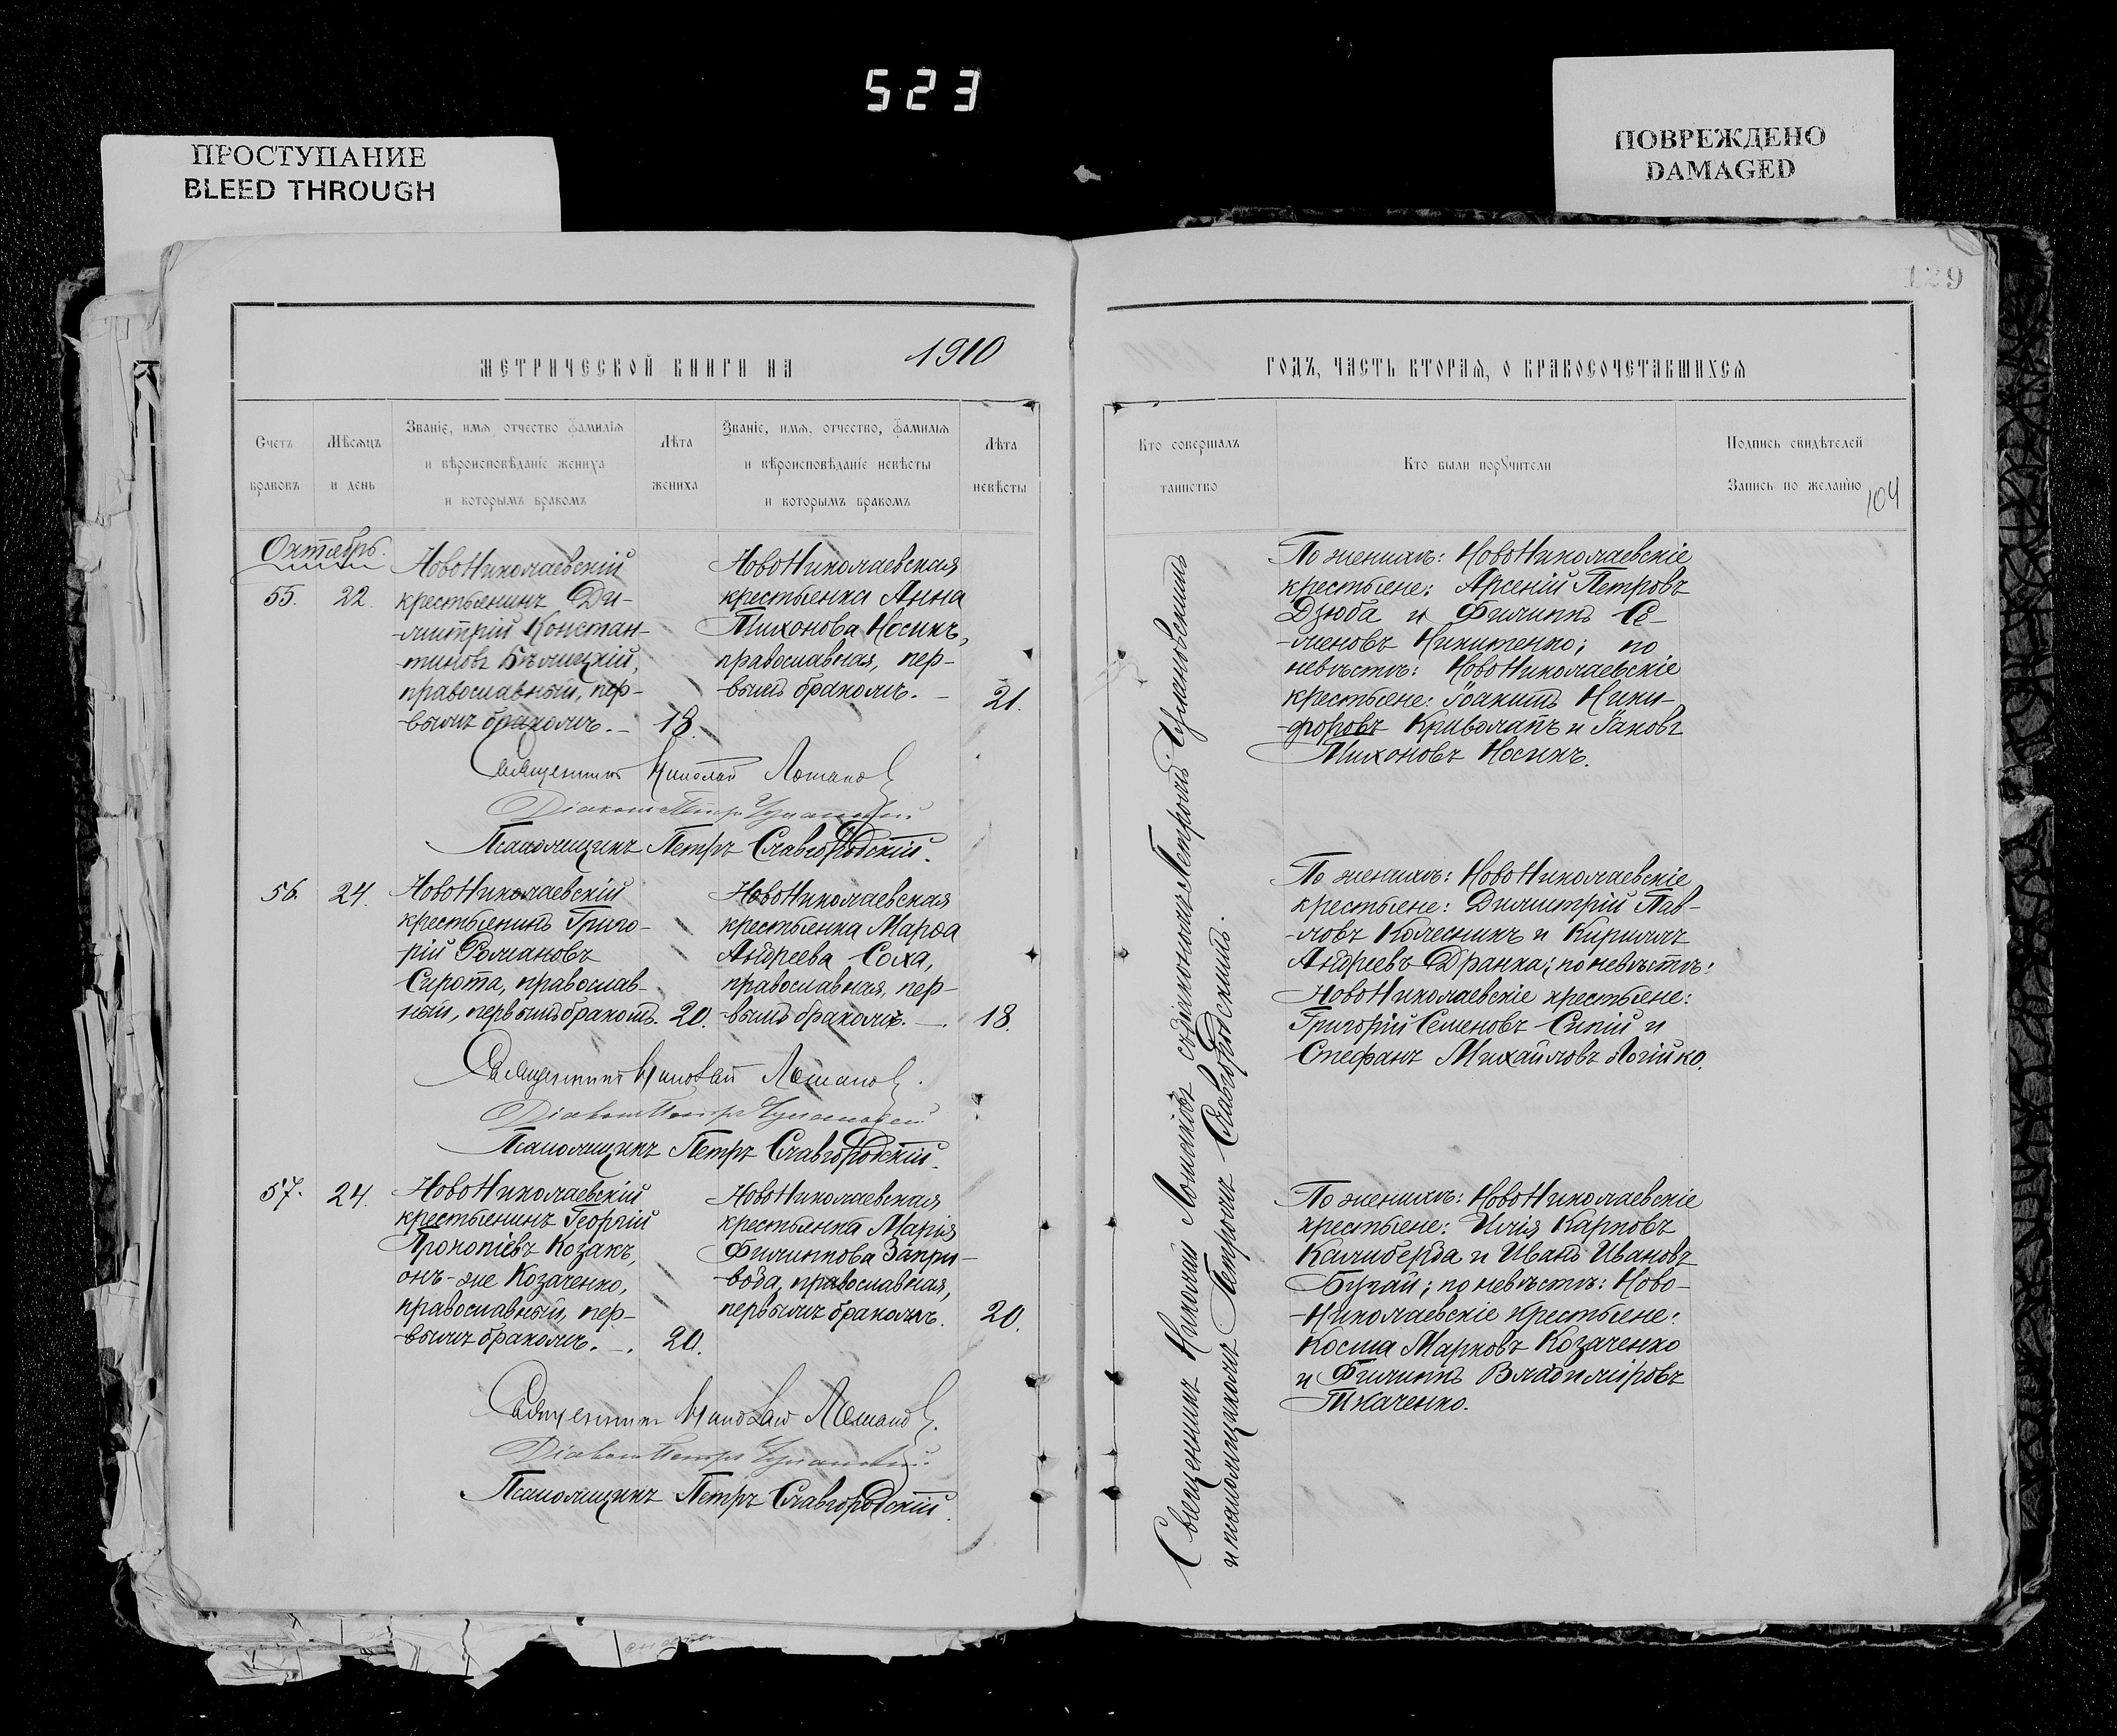 523
ПРОСТУПАНИЕ
BLEED THROUGH
ПОВРЕЖДЕНО
DAMAGED
129
МЕТРИЧЕСКОЙ КНИГИ НА 1910
Счетъ браковъ
Мѣсяцъ и день
Званіе, имя, отчество фамилія
и вѣроисповѣданіе жениха
и которымъ бракомъ
Лѣта жениха
Званіе, имя, отчество, фамилія
и вѣроисповѣданіе невѣсты
и которымъ бракомъ
Лѣта невѣсты
Октябрь.
55. 22.
НовоНиколаевскій
крестьянинъ Ди-
-митрій Констан-
-тиновъ Бѣлицкій,
православный, пер-
-вымъ бракомъ. 18.
НовоНиколаевская
крестьянка Анна
Тихонова Носикъ,
православная, пер-
-вымъ бракомъ. 21.
Священникъ Николай Ломаковъ
Діаконъ Петръ
Псаломщикъ Петръ Славгородскій.
56. 24.
НовоНиколаевскій
крестьянинъ Григо-
рій Романовъ
Сирота, православ-
ный, первымъ бракомъ. 20.
НовоНиколаевская
крестьянка Марѳа
Андреева Соха,
православная, пер-
-вымъ бракомъ. 18.
Священникъ Николай Ломаковъ.
Діаконъ Петръ
Псаломщикъ Петръ Славгородскій.
57. 24.
НовоНиколаевскій
крестьянинъ Георгій
Прокопіевъ Козакъ,
онъ-же Козаченко,
православный, пер-
-вымъ бракомъ. 20.
НовоНиколаевская
крестьянка Марія
Филиппова Запри-
-вода, православная,
первымъ бракомъ. 20.
Священникъ Николай Ломаковъ.
Діаконъ Петръ
Псаломщикъ Петръ Славгородскій.
ГОДЪ, ЧАСТЬ ВТОРАЯ, О БРАКОСОЧЕТАВШИХСЯ
Кто совершалъ
таинство
Кто были поручители
Подпись свидѣтелей
Запись по желанію
104
Священникъ Николай Ломаковъ съ діакономъ Петромъ
и псаломщикомъ Петромъ Славгородскимъ.
По женихѣ: НовоНиколаевскіе
крестьяне: Арсеній Петровъ
Дзюба и Филиппъ Се-
-меновъ Никитенко; по
невѣстѣ: НовоНиколаевскіе
крестьяне: Іоакимъ Ники-
-форовъ Криволапъ и Іаковъ
Тихоновъ Носикъ.
По женихѣ: НовоНиколаевскіе
крестьяне: Димитрій Пав-
-ловъ Колесникъ и Кириллъ
Андреевъ Дранка; по невѣстѣ:
НовоНиколаевскіе крестьяне:
Григорій Семеновъ Сипій и
Стефанъ Михайловъ Логійко.
По женихѣ: НовоНиколаевскіе
крестьяне: Илія Карповъ
Калиберда и Иванъ Ивановъ
Бугай; по невѣстѣ: Ново-
-Николаевскіе крестьяне:
Косма Марковъ Козаченко
и Филиппъ Владиміровъ
Ткаченко.